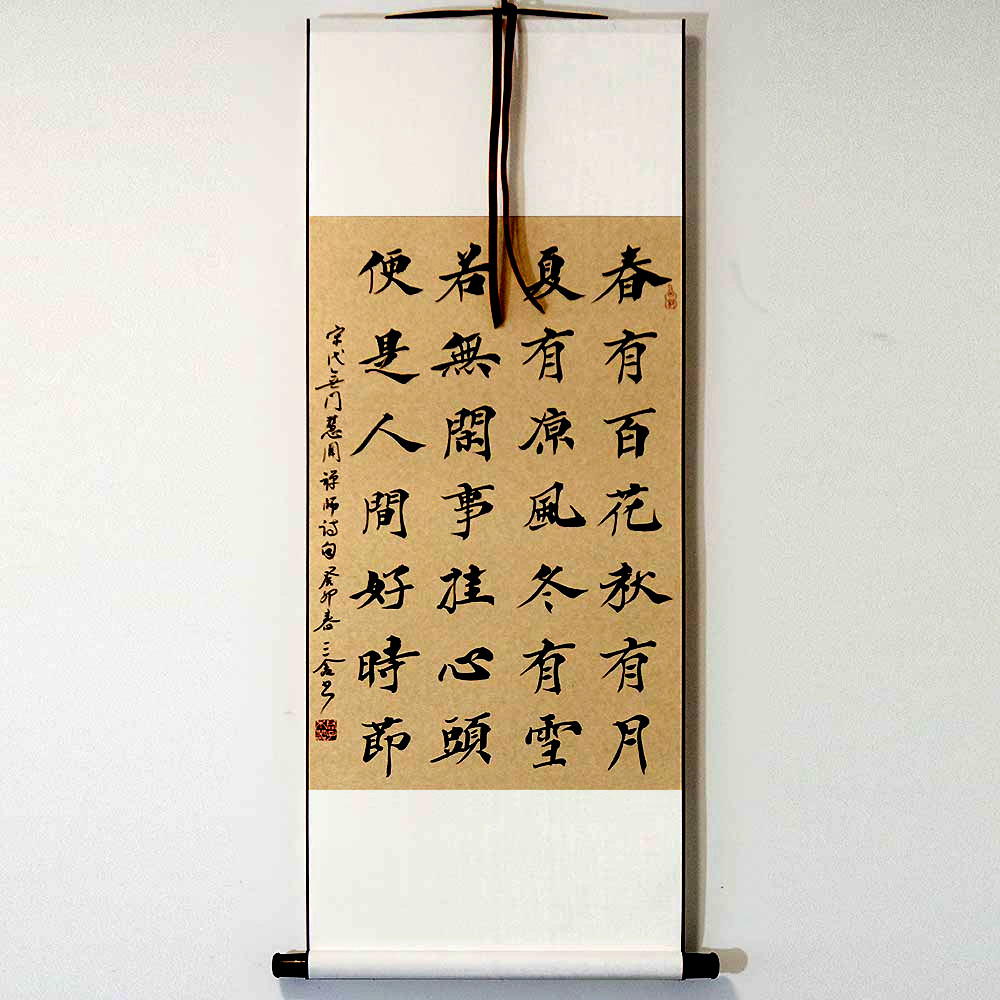 春有百花秋有月
夏有凉風冬有雪
若無閑事挂心頭
便是人間好時節
宋代无门慧開禅师诗句癸卯春三金书